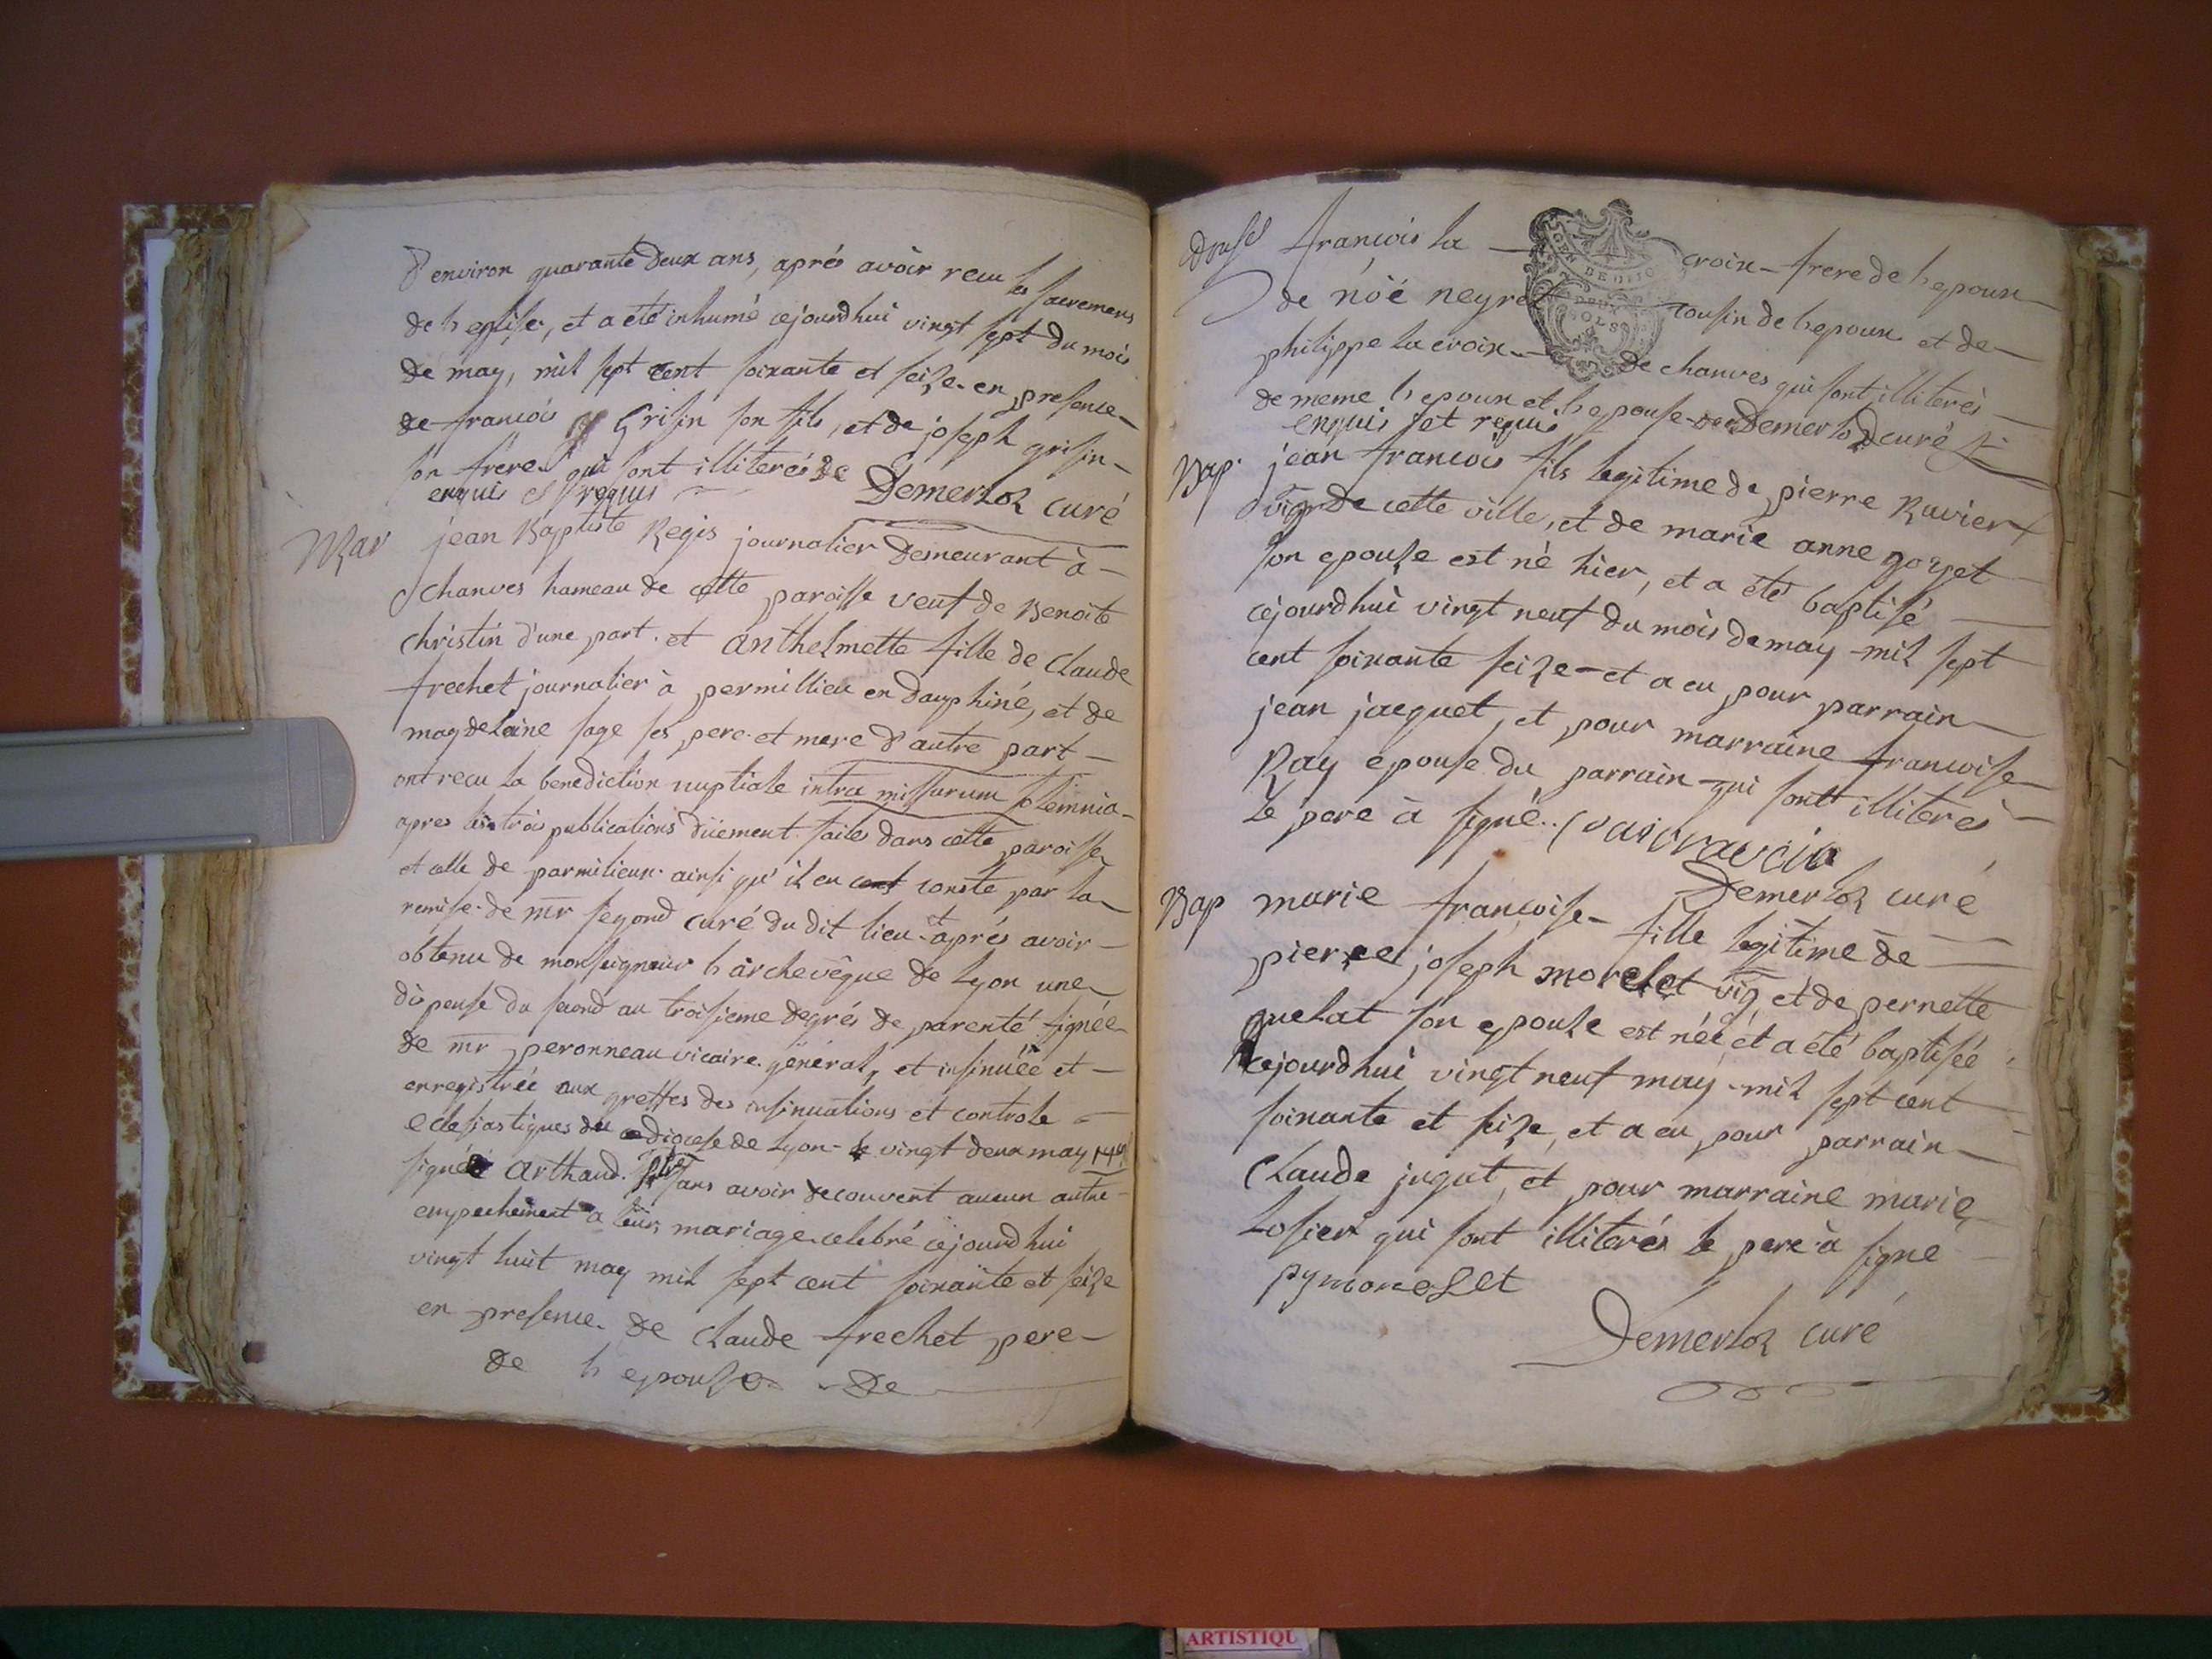 d'environ quarante deux ans, aprés avoir recu les sacremens
de l eglise, et a été inhumé cejourdhui vingt sept du mois
de may, mil sept cent soixante et seize en presence
de francois Grisin son fils, et de joseph grisin
son frére qui sont illiterés de
enquis et requis Demerloz curé
Mar jean Baptiste Regis journalier demeurant à
chanves hameau de cette paroisse veuf de Benoite
christin d'une part. et anthelmette fille de claude
frechet journalier à permillieu en dauphiné, et de
magdelaine sage ses pere et mere d'autre part
ont recu la benediction nuptiale intra missarum solemnia
apres les trois publications düement faites dans cette paroisse
et celle de parmilieux ainsi qu'il en conste par la
remise de mr segond curé du dit lieu et aprés avoir
obtenu de monseigneur l archevêque de Lyon une
dispense du second au troisieme degrés de parenté signée
de mr peronneau vicaire général, et insinuée et
enregistrée aux greffes des insinuations et controle
eclesiastiques du diocese de Lyon le vingt deux may
signé arthaud. sans avoir decouvert aucun autre
empechement a leur mariage celebré cejourdhui
vingt huit may mil sept cent soixante et seize
en presence de claude frechet pere
de l epouse de
françois la croix frere de l epoux
de nöé neyret cousin de l epoux et de
philippe la croix de chanves qui sont illiterés
de meme l epoux et l epouse de Demerloz curé
enquis et requis
Bap jean francois fils legitime de pierre Ravier
vig de cette ville, et de marie anne gorjet
son epouse est né hier, et a été baptisé
cejourdhui vingt neuf du mois de may mil sept
cent soixante seize et a eu pour parrain
jean jacquet, et pour marraine francoise
Ray epouse du parrain qui sont illiterés
Le pere à signé.
Demerloz curé
Bap marie françoise fille legitime de
pierre joseph morelet vig, et de pernette
quelat son epouse est née et a été baptisée
cejourdhui vingt neuf may mil sept cent
soixante et seize, et a eu pour parrain
Claude jugat, et pour marraine marie
Losier qui sont illiterés le pere à signé
pj morelet
Démerloz curé
ARTISTIQU